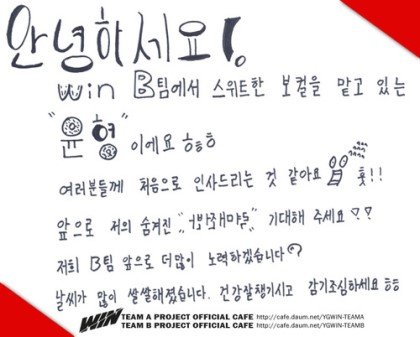 안녕하세요!
win B팀에서 스위트한 보컬을 맡고 있는
"윤형"이에요 ㅎㅎㅎ
여러분들께 처음으로 인사드리는 것 같아요 훗!!
앞으로 저의 숨겨진 기대해 주세요 ♡♡
저희 B팀 앞으로 더많이 노력하겠습니다
날씨가 많이 쌀쌀해졌습니다. 건강잘챙기시고 감기조심하세요 ㅎㅎ
WIN TEAM A PROJECT OFFICIAL CAFE http://cafe.daum.net/YGWIN-TEAMA
TEAM B PROJECT OFFICIAL CAFE http://cafe.daum.net/YGWIN-TEAMB